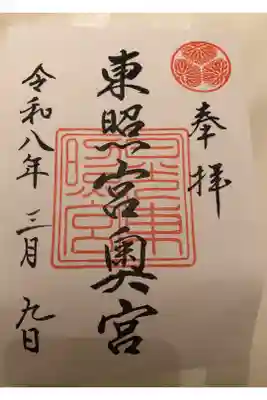 奉拝
東照宮奥宮
令和八年 三月 九日